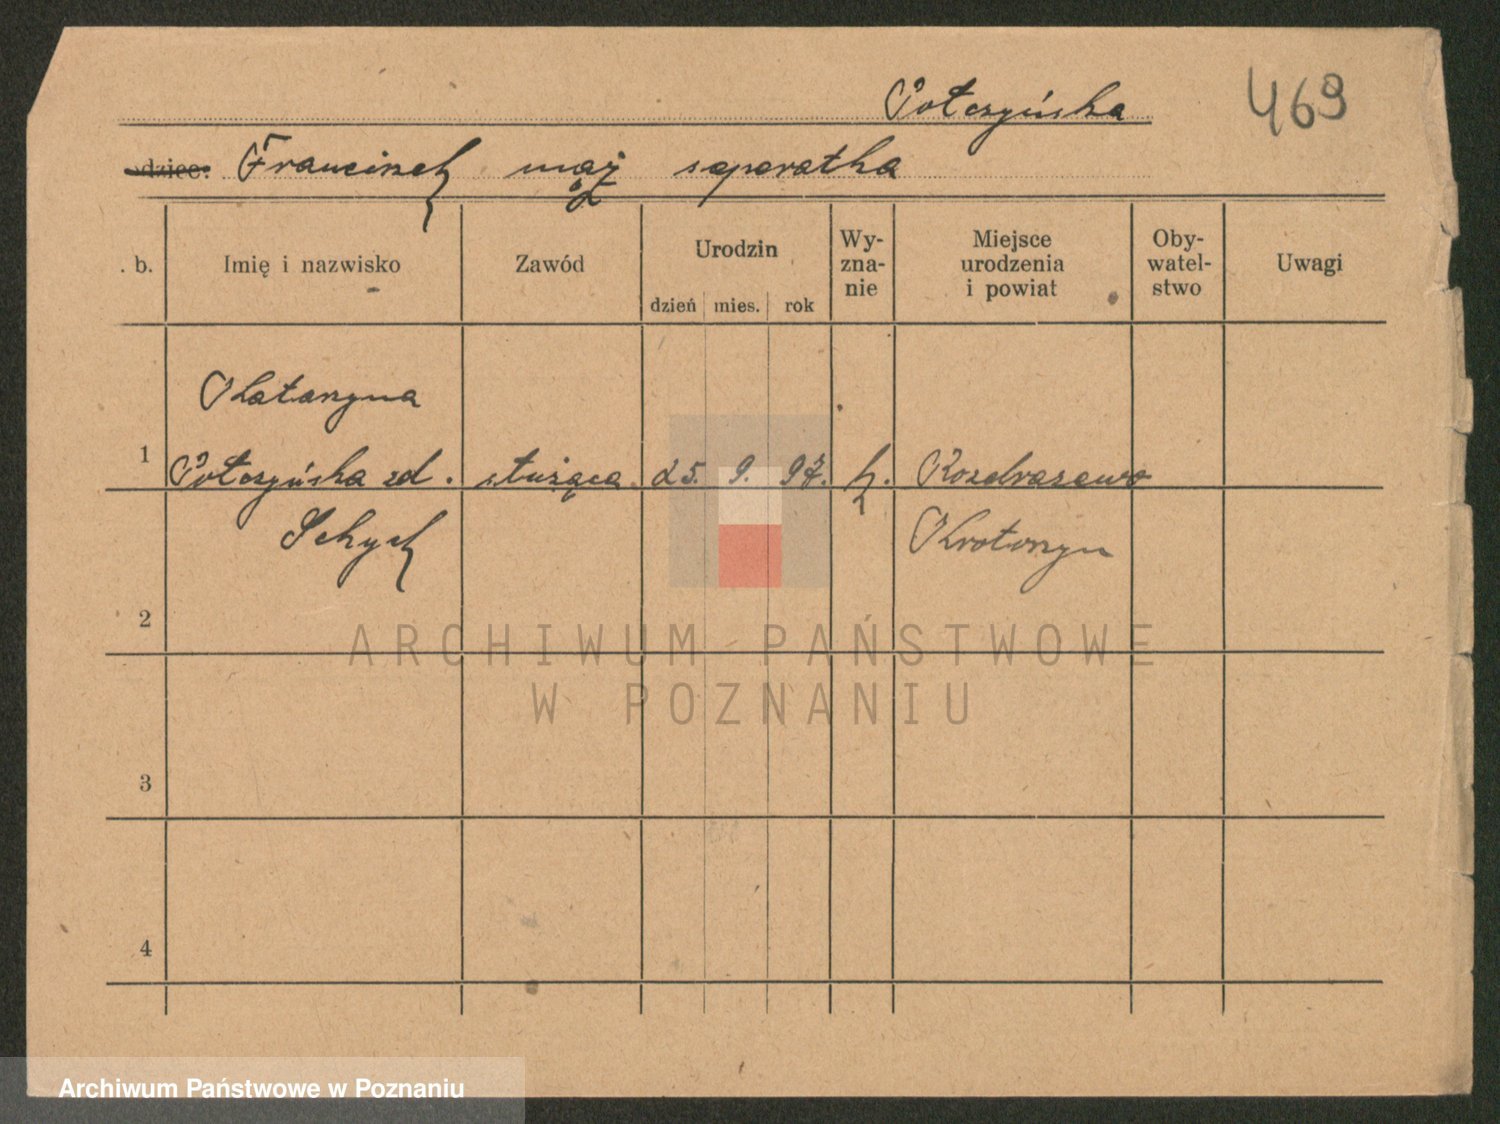 Połczyńska 469
odziee: Franciszek mąż separatka
. b. Imię i nazwisko Zawód Urodzin dzień mies. rok Wy-zna-nie Miejsce urodzenia i powiat Oby-watel-stwo Uwagi
Katarzyna
1 Połczyńska zd. służąca. 25. 9. 97. k. Rozdrażewo
Krotoszyn
2
ARCHIWUM PAŃSTWOWE
W POZNANIU
3
4
Archiwum Państwowe w Poznaniu